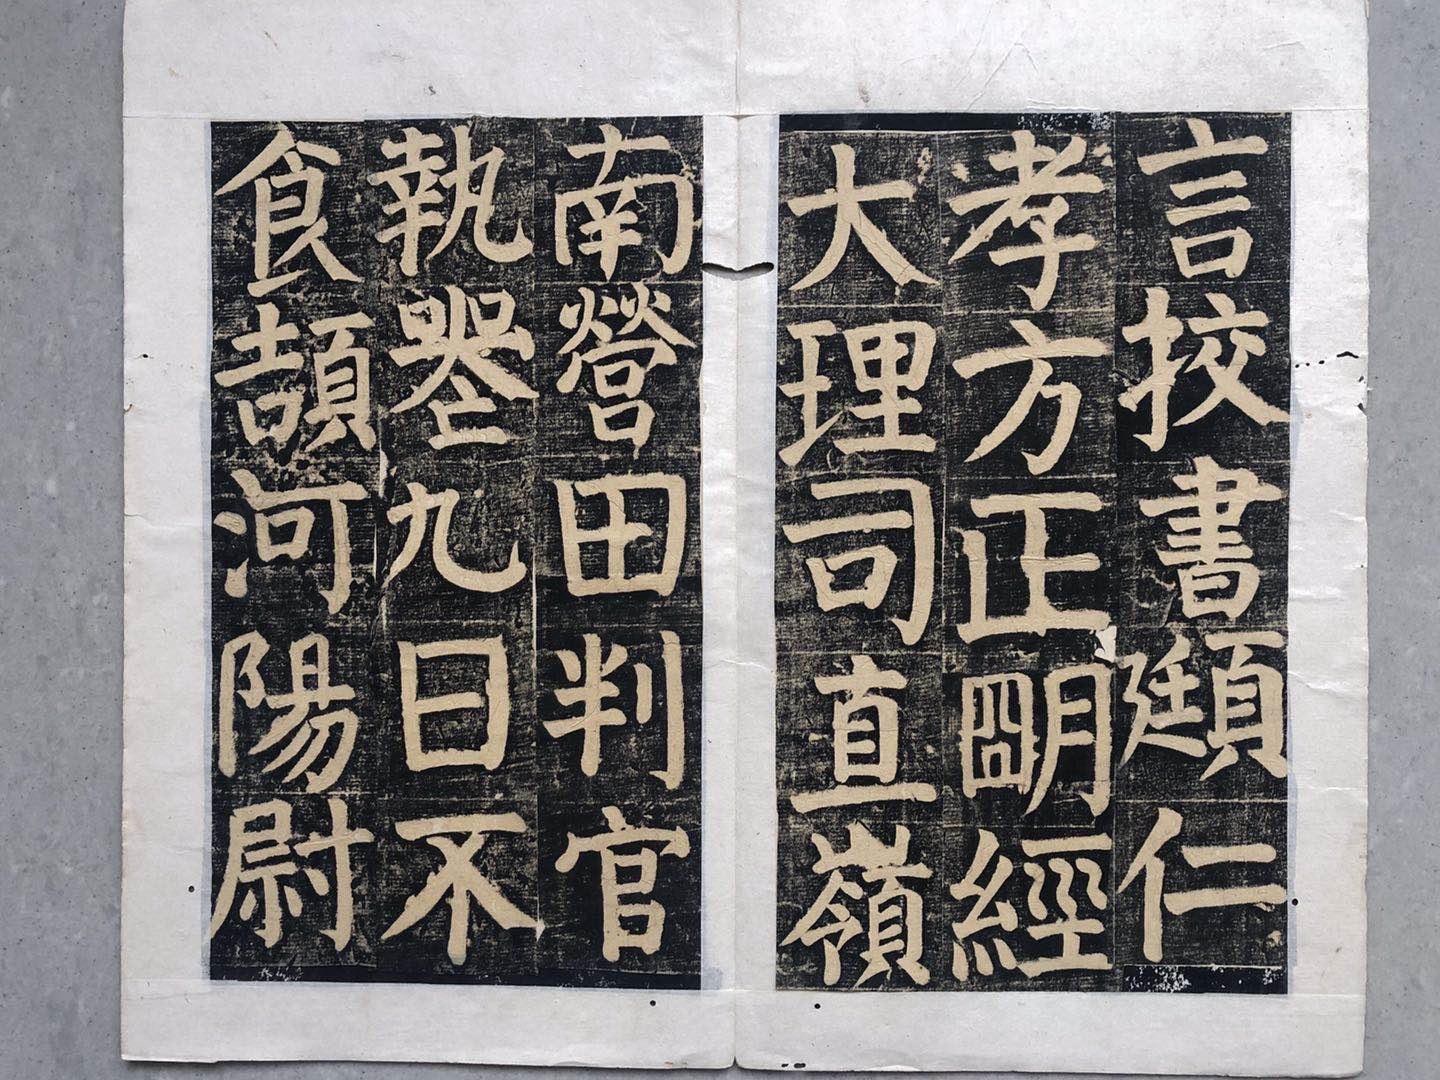 言挍書頲仁
孝方正朙經
大理司直嶺
南營田判官
執喪九日不
食頡河陽尉